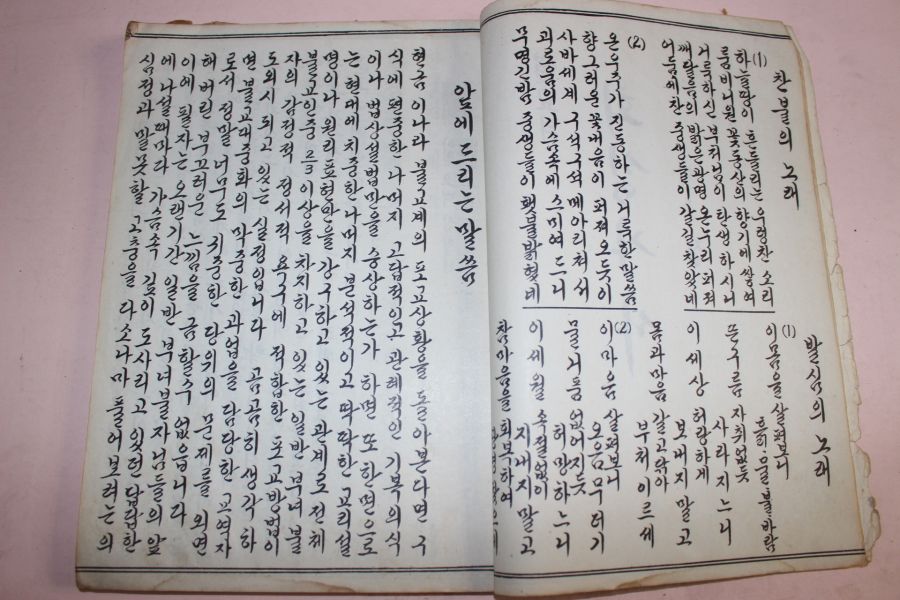 찬불의 노래
(1)
하늘땅이 흔들리는 우렁찬 소리
룸비니원 꽃동산의 향기에 쌓여
거룩하신 부처님이 탄생 하시니
깨달음의 밝은광명 온누리 퍼져
어둠에찬 중생들이 갈길 찾았네
(2)
온 우주가 진동하는 거룩한 말씀
향그러운 꽃내음이 퍼져오듯이
사바세계 구석구석 메아리쳐서
괴로움의 가슴속에 스미여 드니
무명긴밤 중생들이 햇불밝혔네
발심의 노래
(1)
이몸을 살펴보니
흙.물.불.바람
뜬구름 자취없듯
사라지느니
이세상 허랑하게
보내지 말고
몸과마음 갈고닦아
부처 이르세
(2)
이마음 살펴보니
오음무더기
물거품 없어지듯
허망하느니
이세월 속절없이
지내지 말고
참마음을 회보하여
앞에 드리는 말씀
현금 이나라 불교계의 포교상황을 돌아본다면 구
식에 편중한 나머지 고답적이고 관례적인 기복의식
이나 법상설법만을 숭상하는가 하면 또 한면으로
는 현대에 치중한 나머지 분석적이고 딱딱한 교리설
명이나 원리표현만을 강구하고 있는 관계로 전체
불교인중 ⅔ 이상을 차지하고 있는 일반 부녀 불
자의 감정적 정서적 욕구에 적합한 포교방법이
도외시 되고 있는 실정입니다 곰곰히 생각하
면 불교대중화의 막중한 과업을 담당한 교역자
로서 정말 너무도 치중한 당위의 문제를 외면
해 버린 부끄러운 느낌을 금할수 없읍니다
이에 필자는 오랜기간 일반 부녀불자님들의 앞
에 나설때마다 가슴속 깊이 도사리고 있던 답답한
심정과 말못할 고충을 다소나마 풀어보려는 의